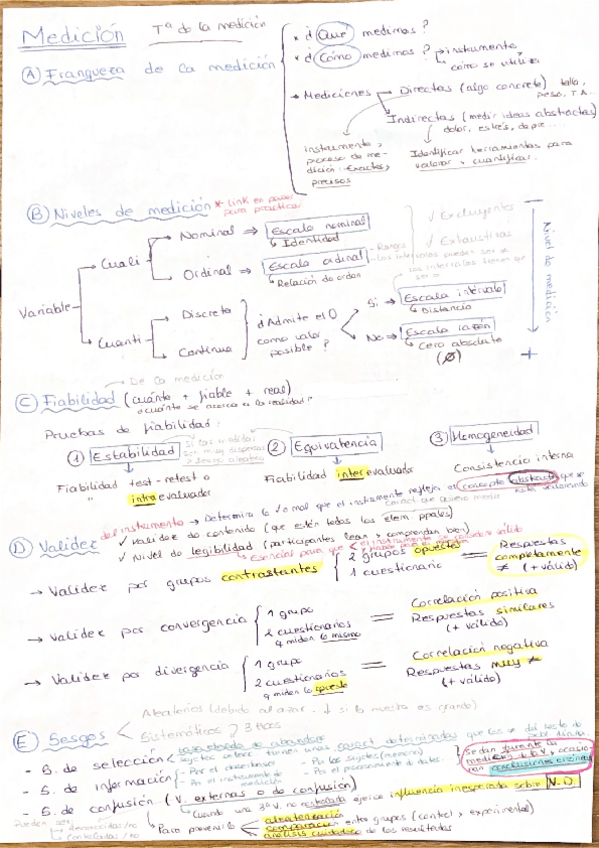 Medición Tª de la medición
× ¿Qué medimos?
× ¿Cómo medimos? instrumento, cómo se utiliza
A) Franqueza de la medición
→ Mediciones Directas (algo concreto) talla, peso, T.A...
Indirectas (medir ideas abstractas)
dolor, estrés, depre....
instrumento y proceso de medición exactos, precisos
Identificar herramientas para valorar y cuantificar.
B) Niveles de medición * Link en para practicar
Variable
Cuali
Nominal ⇒ Escala nominal
↳ Identidad
Ordinal ⇒ Escala ordinal - Rangos
↳ Relación de orden
✓ Excluyentes
✓ Exhaustivas
Nivel de medición
Cuanti
Discreta
Continua
¿Admite el 0 como valor posible?
Si → Escala intervalo
↳ Distancia
No → Escala razón
↳ Cero absoluto
(Ø)
+
De la medición
C) Fiabilidad (cuánto + fiable + real)
¿cuánto se acerca a la realidad?
Pruebas de fiabilidad:
1 Estabilidad
2 Equivalencia
3 Homogeneidad
Fiabilidad test-retest o
" intraevaluador
Fiabilidad interevaluador
Consistencia interna
del instrumento → Determina lo v o mal que el instrumento refleja el concepto abstracto que se está valorando
D) Validez
✓ Validez de contenido (que estén todos los elem. ppales)
✓ Nivel de legibilidad (participantes lean y comprendan bien)
→ Validez por grupos contrastantes { 2 grupos opuestos
1 cuestionario
= Respuestas completamente ≠ (+ válido)
→ Validez por convergencia { 1 grupo
2 cuestionarios q miden lo mismo
= Correlación positiva
Respuestas similares
(+ válido)
→ Validez por divergencia { 1 grupo
2 cuestionarios q miden lo opuesto
= Correlación negativa
Respuestas muy ≠
(+ válido)
Aleatorios (debido al azar - ↓ si la muestra es grande)
E) Sesgos
Sistemáticos 3 tipos
- S. de selección
- S. de información
- Por el observador
- Por el instrumento de medición
- Por los sujetos (memoria)
- Por el procesamiento de datos
se dan durante la medición de la V. y ocasionan conclusiones erróneas
- S. de confusión (V. externas o de confusión)
↳ Cuando una 3ª V. no controlada ejerce influencia inesperada sobre V.D
Pueden ser:
Reconocidas / no
Controladas / no
↳ Para prevenirlo
aleatorización
comparación entre grupos (control y experimental)
análisis cuidadoso de los resultados